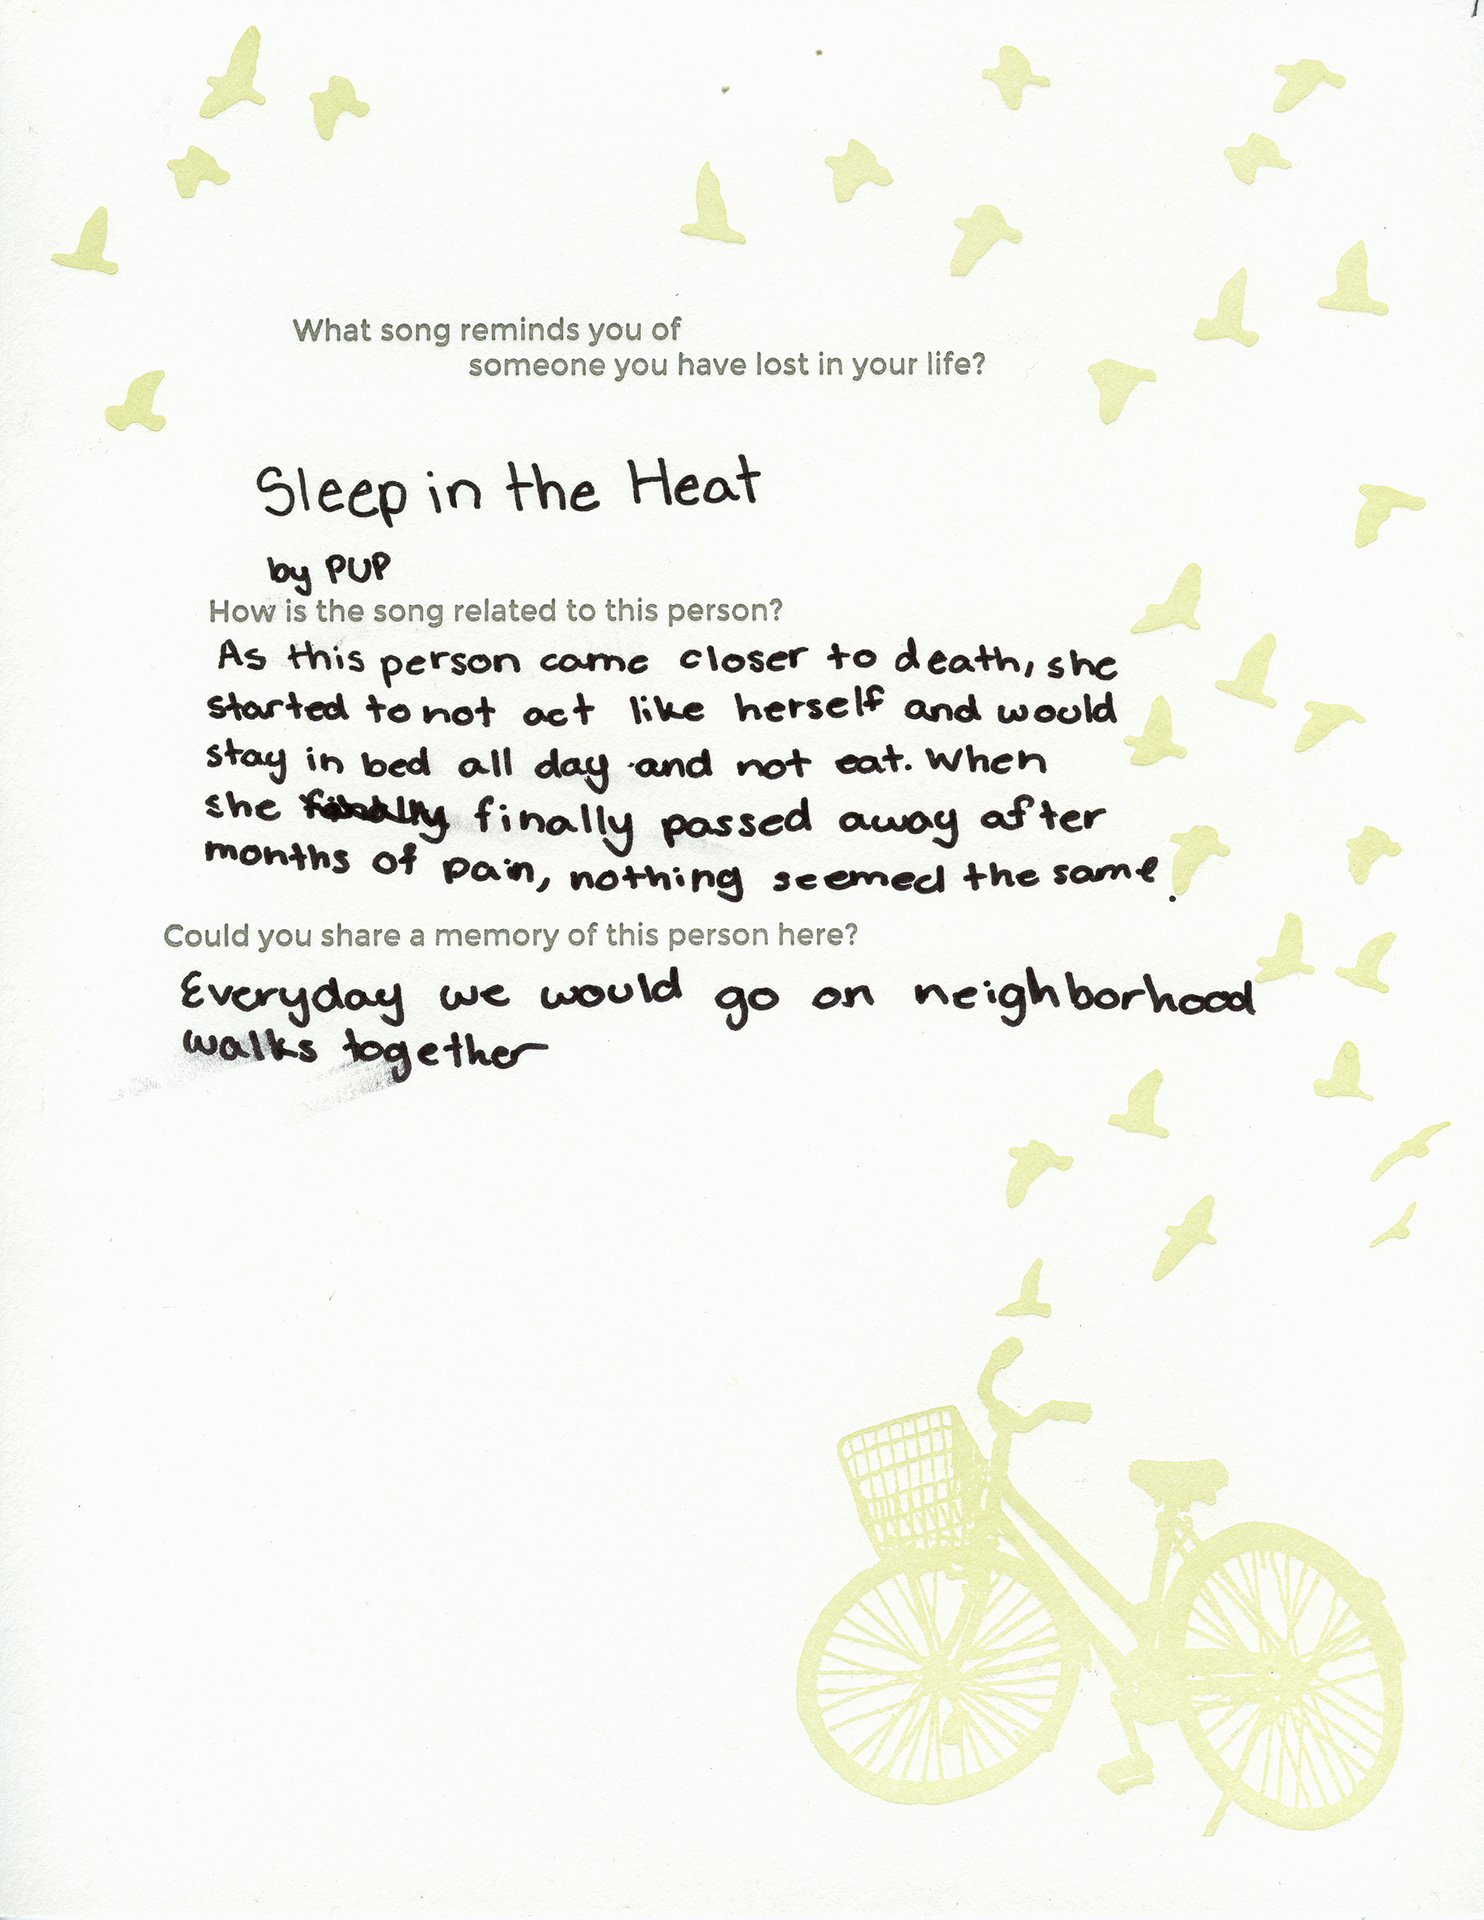 What song reminds you of
someone you have lost in your life?
Sleep in the Heat
by PUP
How is the song related to this person?
As this person came closer to death, she
started to not act like herself and would
stay in bed all day and not eat. When
she finally passed away after
months of pain, nothing seemed the same.
Could you share a memory of this person here?
Everyday we would go on neighborhood
walks together